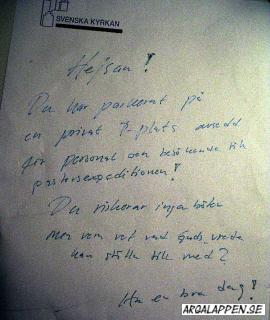 SVENSKA KYRKAN
Hejsan!
Du har parkerat på
en privat P-plats avsedd
för personal och besökande till
pastorsexpeditionen!
Du riskerar inga böter
men vem vet vad Guds vrede
kan ställa till med?
Ha en bra dag!
ARGALAPPEN.SE